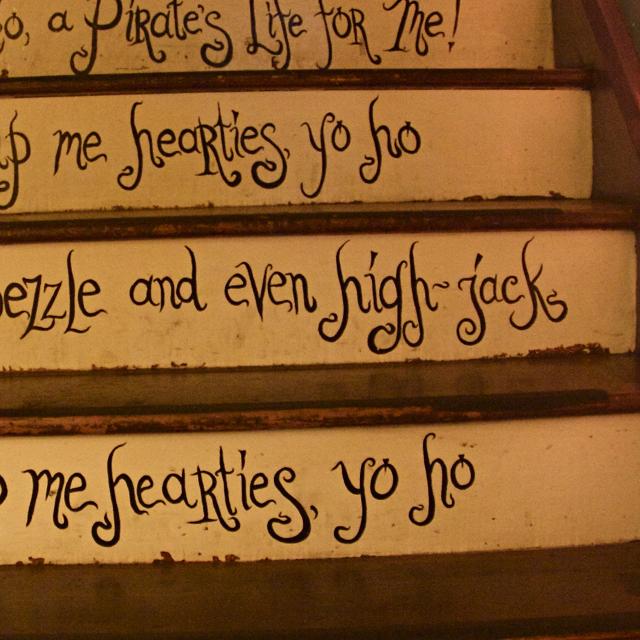 o, a Pirate's Life for Me!
p me hearties, yo ho
ezzle and even high-jack
me hearties, yo ho